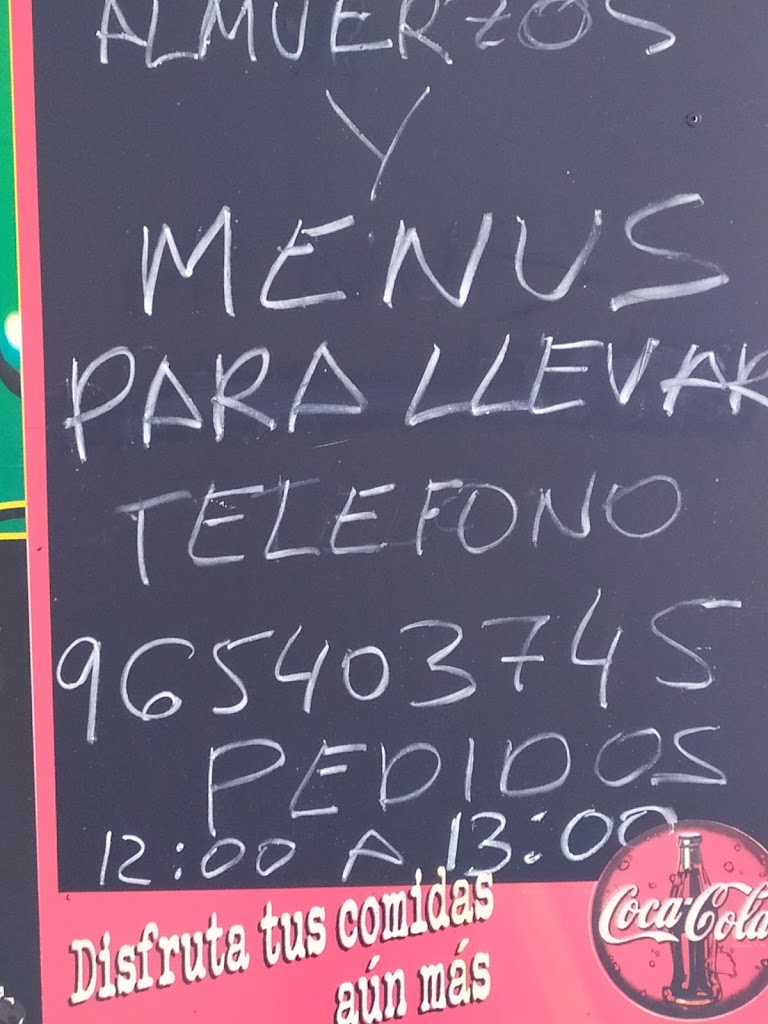 ALMUERZOS
Y
MENUS
PARA LLEVAR
TELEFONO
965403745
PEDIDOS
12:00 A 13:00
Disfruta tus comidas
aún más
Coca-Cola